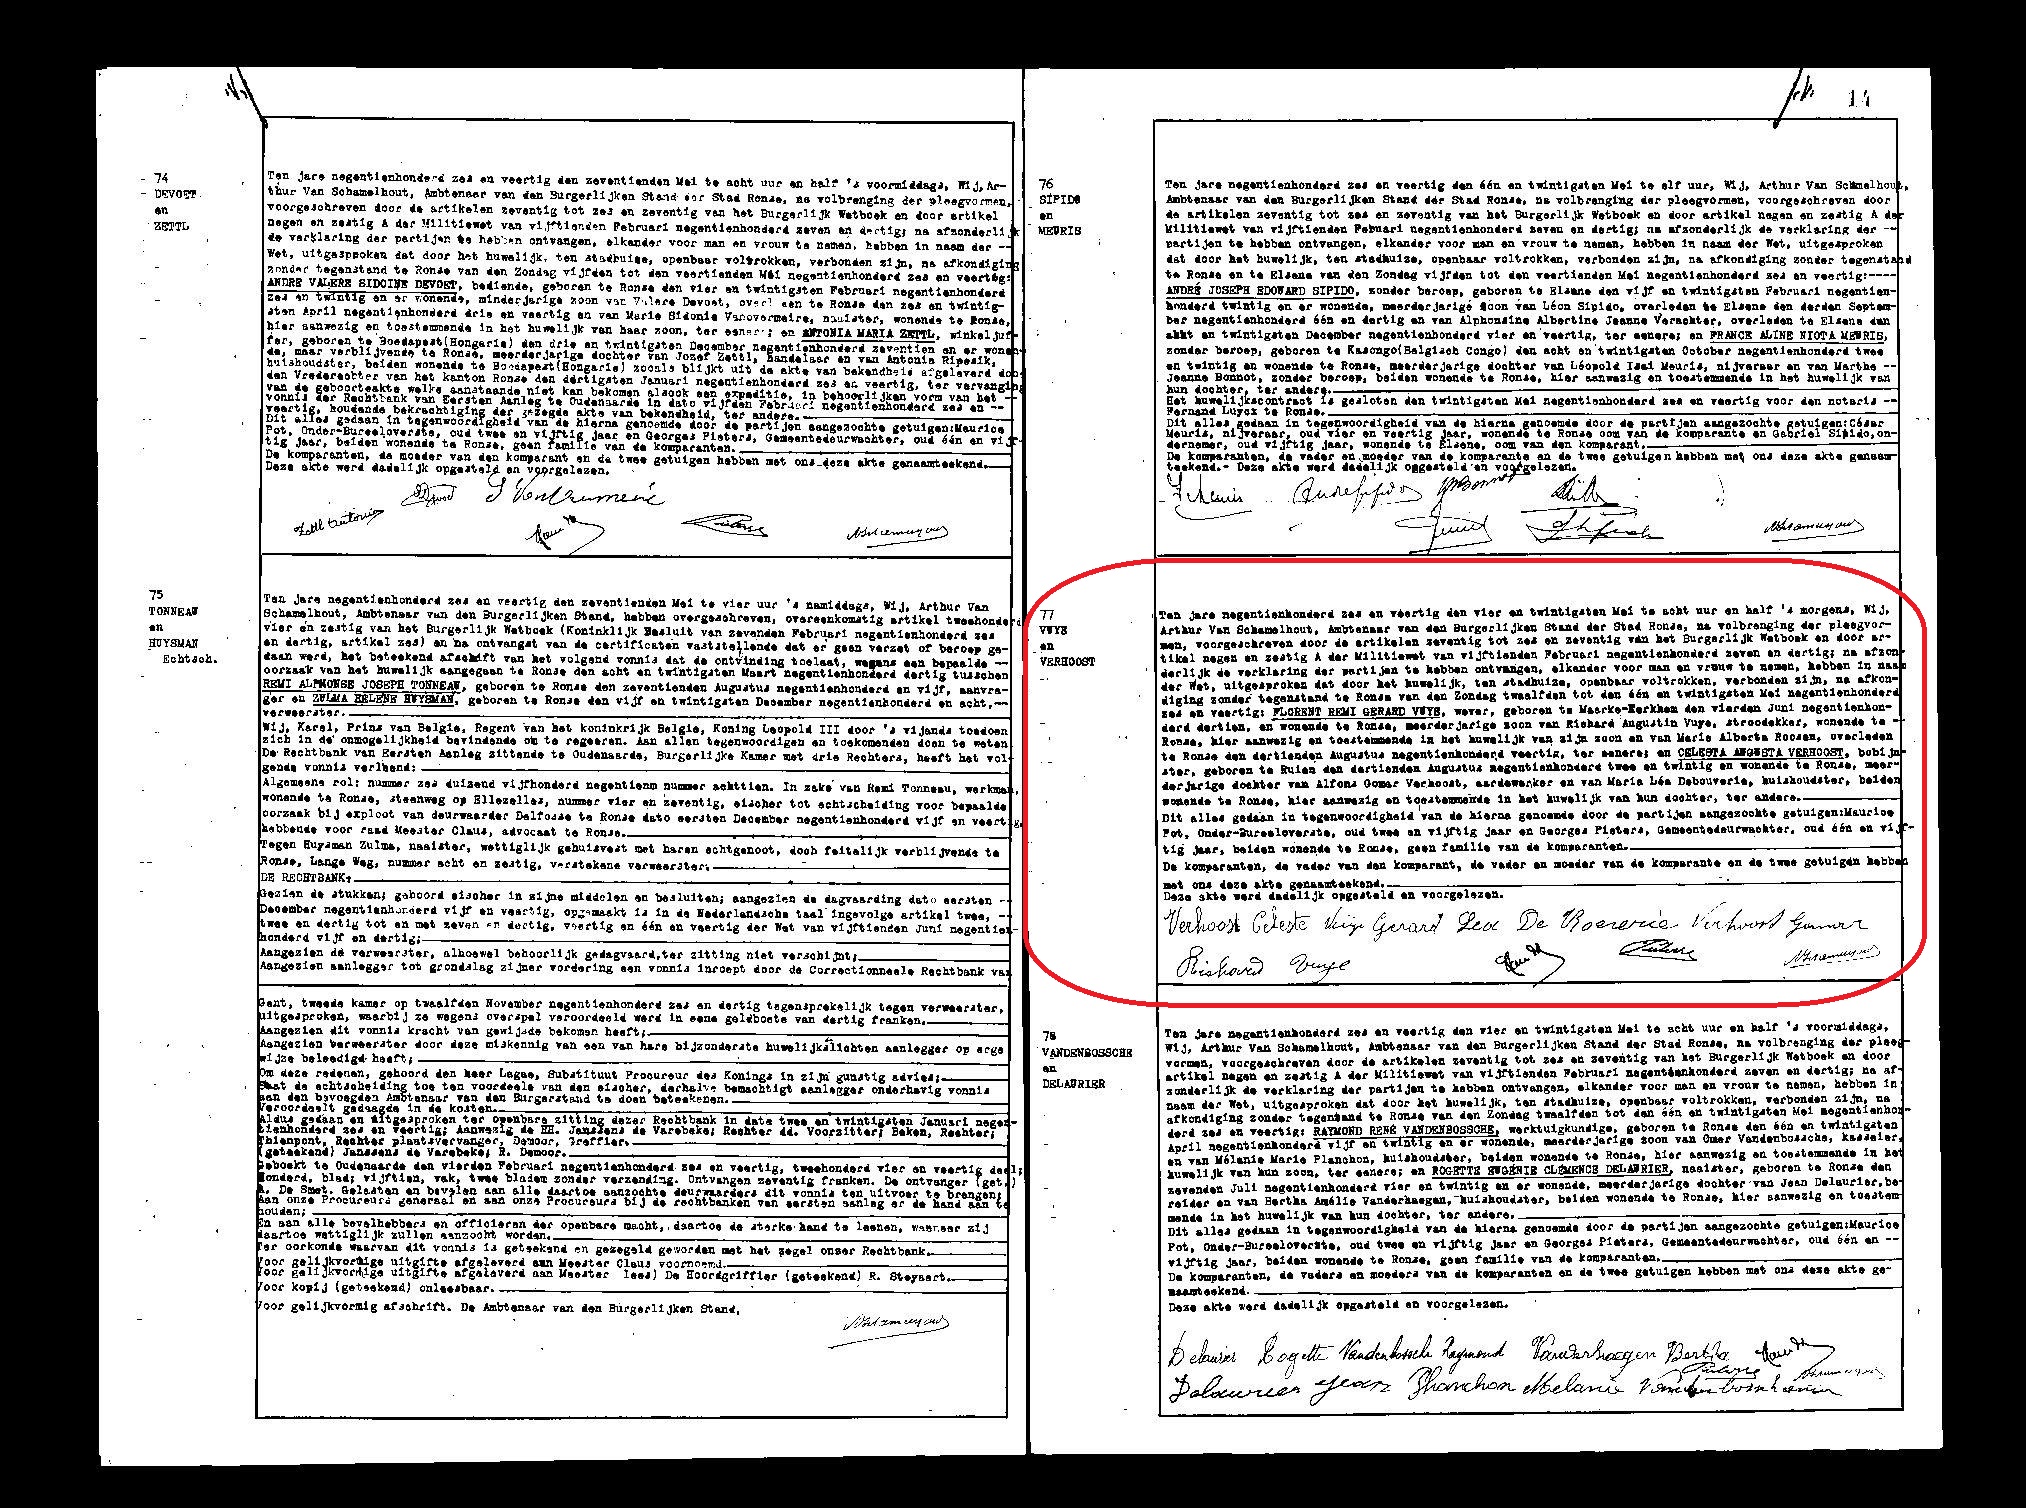 14
74
DEVOET
en
ZETTL
Ten jare negentienhonderd zes en veertig den zeventienden Mei te acht uur en half 's voormiddags, Wij, Ar-
thur Van Schamelhout, Ambtenaar van den Burgerlijken Stand der Stad Ronse, na volbrenging der pleegvormen,
voorgeschreven door de artikelen zeventig tot zes en zeventig van het Burgerlijk Wetboek en door artikel
negen en zestig A der Militiewet van vijftienden Februari negentienhonderd zeven en dertig; na afzonderlijk
de verklaring der partijen te hebben ontvangen, elkander voor man en vrouw te nemen, hebben in naam der --
Wet, uitgesproken dat door het huwelijk, ten stadhuize, openbaar voltrokken, verbonden zijn, na afkondiging
zonder tegenstand te Ronse van den Zondag vijfden tot den veertienden Mei negentienhonderd zes en veertig:
ANDRE VALERE SIDOINE DEVOET, bediende, geboren te Ronse den vier en twintigsten Februari negentienhonderd
zes en twintig en er wonende, minderjarige zoon van Valere Devoet, overleden te Ronse den zes en twintig-
sten April negentienhonderd drie en veertig en van Marie Sidonie Vanovermeire, naaister, wonende te Ronse,
hier aanwezig en toestemmende in het huwelijk van haar zoon, ter eenre; en ANTONIA MARIA ZETTL, winkeljuf-
fer, geboren te Boedapest(Hongarie) den drie en twintigsten December negentienhonderd zeventien en er wonen-
de, maar verblijvende te Ronse, meerderjarige dochter van Jozef Zettl, handelaar en van Antonia Ripszik,
huishoudster, beiden wonende te Boedapest(Hongarie) zooals blijkt uit de akte van bekendheid afgeleverd door
den Vrederechter van het kanton Ronse den dertigsten Januari negentienhonderd zes en veertig, ter vervanging
van de geboorteakte welke aanstaande niet kan bekomen alsook een expeditie, in behoorlijken vorm van het --
vonnis der Rechtbank van Eersten Aanleg te Oudenaarde in dato vijfden Februari negentienhonderd zes en --
veertig, houdende bekrachtiging der gezegde akte van bekendheid, ter andere.
Dit alles gedaan in tegenwoordigheid van de hierna genoemde door de partijen aangezochte getuigen:Maurice
Pot, Onder-Bureeloverste, oud twee en vijftig jaar en Georges Pieters, Gemeentedeurwachter, oud één en vijf-
tig jaar, beiden wonende te Ronse, geen familie van de komparanten.
De komparanten, de moeder van den komparant en de twee getuigen hebben met ons deze akte genaamteekend.
Deze akte werd dadelijk opgesteld en voorgelezen.
Zettl Antonia
75
TONNEAU
en
HUYSMAN
Echtsch.
Ten jare negentienhonderd zes en veertig den zeventienden Mei te vier uur 's namiddags, Wij, Arthur Van
Schamelhout, Ambtenaar van den Burgerlijken Stand, hebben overgeschreven, overeenkomstig artikel tweehonderd
vier en zestig van het Burgerlijk Wetboek (Koninklijk Besluit van zevenden Februari negentienhonderd zes
en dertig, artikel zes) en na ontvangst van de certificaten vaststellende dat er geen verzet of beroep ge-
daan werd, het beteekend afschrift van het volgend vonnis dat de ontbinding toelaat, wegens een bepaalde --
oorzaak van het huwelijk aangegaan te Ronse den acht en twintigsten Maart negentienhonderd dertig tusschen
REMI ALPHONSE JOSEPH TONNEAU, geboren te Ronse den zeventienden Augustus negentienhonderd en vijf, aanvra-
ger en ZULMA HELENE HUYSMAN, geboren te Ronse den vijf en twintigsten December negentienhonderd en acht,--
verweerster.
Wij, Karel, Prins van Belgie, Regent van het koninkrijk Belgie, Koning Leopold III door 's vijands toedoen
zich in de onmogelijkheid bevindende om te regeeren. Aan allen tegenwoordigen en toekomenden doen te weten
De Rechtbank van Eersten Aanleg zittende te Oudenaarde, Burgerlijke Kamer met drie Rechters, heeft het vol-
gende vonnis verleend:
Algemeene rol: nummer zes duizend vijfhonderd negentienn nummer achttien. In zake van Remi Tonneau, werkman,
wonende te Ronse, steenweg op Ellezelles, nummer vier en zeventig, eischer tot echtscheiding voor bepaalde
oorzaak bij exploot van deurwaarder Delfosse te Ronse dato eersten December negentienhonderd vijf en veertig,
hebbende voor raad Meester Claus, advocaat te Ronse.
Tegen Huysman Zulma, naaister, wettiglijk gehuisvest met haren echtgenoot, doch feitelijk verblijvende te
Ronse, Lange Weg, nummer acht en zestig, verstekene verweerster.
DE RECHTBANK:
Gezien de stukken; gehoord eischer in zijne middelen en besluiten; aangezien de dagvaarding dato eersten --
December negentienhonderd vijf en veertig, opgemaakt is in de Nederlandsche taal ingevolge artikel twee, --
twee en dertig tot en met zeven en dertig, veertig en één en veertig der Wet van vijftienden Juni negentien-
honderd vijf en dertig;
Aangezien de verweerster, alhoewel behoorlijk gedagvaard,ter zitting niet verschijnt;
Aangezien aanlegger tot grondslag zijner vordering een vonnis inroept door de Correctionneele Rechtbank van
Gent, tweede kamer op twaalfden November negentienhonderd zes en dertig tegensprekelijk tegen verweerster,
uitgesproken, waarbij ze wegens overspel veroordeeld werd in eene geldboete van dertig franken.
Aangezien dit vonnis kracht van gewijsde bekomen heeft;
Aangezien verweerster door deze miskennig van een van hare bijzonderste huwelijksplichten aanlegger op erge
wijze beleedigd heeft;
Om deze redenen, gehoord den heer Lagae, Substituut Procureur des Konings in zijn gunstig advies;
Staat de echtscheiding toe ten voordeele van den eischer, derhalve bemachtigt aanlegger onderhavig vonnis
aan den bevoegden Ambtenaar van den Burgerstand te doen beteekenen.
Veroordeelt gedaagde in de kosten.
Aldus gedaan en uitgesproken ter openbare zitting dezer Rechtbank in date twee en twintigsten Januari negen-
tienhonderd zes en veertig; Aanwezig de HH. Janssens de Varebeke; Rechter dd. Voorzitter; Beken, Rechter;
Thienpont, Rechter plaatsvervanger, Demoor, Greffier.
(geteekend) Janssens de Varebeke; R. Demoor.
Geboekt te Oudenaarde den vierden Februari negentienhonderd zes en veertig, tweehonderd vier en veertig deel;
honderd, blad; vijftien, vak, twee bladen zonder verzending. Ontvangen zeventig franken. De ontvanger (get.)
A. De Smet. Gelasten en bevelen aan alle daartoe aanzochte deurwaarders dit vonnis ten uitvoer te brengen;
Aan onze Procureurs generaal en aan onze Procureurs bij de rechtbanken van eersten aanleg er de hand aan te
houden;
En aan alle bevelhebbers en officieren der openbare macht, daartoe de sterke hand te leenen, wanneer zij
daartoe wettiglijk zullen aanzocht worden.
Ter oorkonde waarvan dit vonnis is geteekend en gezegeld geworden met het zegel onzer Rechtbank.
Voor gelijkvormige uitgifte afgeleverd aan Meester Claus voornoemd.
Voor gelijkvormige uitgifte afgeleverd aan Meester lees) De Hoordgriffier (geteekend) R. Steyaert.
Voor kopij (geteekend) onleesbaar.
Voor gelijkvormig afschrift. De Ambtenaar van den Burgerlijken Stand,
76
SIPIDO
en
MEURIS
Ten jare negentienhonderd zes en veertig den één en twintigsten Mei te elf uur, Wij, Arthur Van Schamelhout,
Ambtenaar van den Burgerlijken Stand der Stad Ronse, na volbrenging der pleegvormen, voorgeschreven door
de artikelen zeventig tot zes en zeventig van het Burgerlijk Wetboek en door artikel negen en zestig A der
Militiewet van vijftienden Februari negentienhonderd zeven en dertig; na afzonderlijk de verklaring der --
partijen te hebben ontvangen, elkander voor man en vrouw te nemen, hebben in naam der Wet, uitgesproken
dat door het huwelijk, ten stadhuize, openbaar voltrokken, verbonden zijn, na afkondiging zonder tegenstand
te Ronse en te Elsene van den Zondag vijfden tot den veertienden Mei negentienhonderd zes en veertig:----
ANDRÉ JOSEPH EDOUARD SIPIDO, zonder beroep, geboren te Elsene den vijf en twintigsten Februari negentien-
honderd twintig en er wonende, meerderjarige zoon van Léon Sipido, overleden te Elsene den derden Septem-
ber negentienhonderd één en dertig en van Alphonsine Albertine Jeanne Verachter, overleden te Elsene den
acht en twintigsten December negentienhonderd vier en veertig, ter eenere; en FRANCE ALINE NIOTA MEURIS,
zonder beroep, geboren te Kasongo(Belgisch Congo) den acht en twintigsten October negentienhonderd twee
en twintig en wonende te Ronse, meerderjarige dochter van Léopold Isaï Meuris, nijveraar en van Marthe --
Jeanne Bonnot, zonder beroep, beiden wonende te Ronse, hier aanwezig en toestemmende in het huwelijk van
hun dochter, ter andere.
Het huwelijkscontract is gesloten den twintigsten Mei negentienhonderd zes en veertig voor den notaris --
Fernand Luyckx te Ronse.
Dit alles gedaan in tegenwoordigheid van de hierna genoemde door de partijen aangezochte getuigen:César
Meuris, nijveraar, oud vier en veertig jaar, wonende te Ronse oom van de komparante en Gabriel Sipido,on-
dernemer, oud vijftig jaar, wonende te Elsene, oom van den komparant.
De komparanten, de vader en moeder van de komparante en de twee getuigen hebben met ons deze akte genaam-
teekend.- Deze akte werd dadelijk opgesteld en voorgelezen.
77
VUYE
en
VERHOOST
Ten jare negentienhonderd zes en veertig den vier en twintigsten Mei te acht uur en half 's morgens, Wij,
Arthur Van Schamelhout, Ambtenaar van den Burgerlijken Stand der Stad Ronse, na volbrenging der pleegvor-
men, voorgeschreven door de artikelen zeventig tot zes en zeventig van het Burgerlijk Wetboek en door ar-
tikel negen en zestig A der Militiewet van vijftienden Februari negentienhonderd zeven en dertig; na afzon-
derlijk de verklaring der partijen te hebben ontvangen, elkander voor man en vrouw te nemen, hebben in naam
der Wet, uitgesproken dat door het huwelijk, ten stadhuize, openbaar voltrokken, verbonden zijn, na afkon-
diging zonder tegenstand te Ronse van den Zondag twaalfden tot den één en twintigsten Mei negentienhonderd
zes en veertig: FLORENT REMI GERARD VUYE, wever, geboren te Maarke-Kerkhem den vierden Juni negentienhon-
derd dertien, en wonende te Ronse, meerderjarige zoon van Richard Augustin Vuye, stroodekker, wonende te --
Ronse, hier aanwezig en toestemmende in het huwelijk van zijn zoon en van Marie Alberta Roosen, overleden
te Ronse den dertienden Augustus negentienhonderd veertig, ter eenere; en CELESTA AUGUSTA VERHOOST, bobijn-
ster, geboren te Ruien den dertienden Augustus negentienhonderd twee en twintig en wonende te Ronse, meer-
derjarige dochter van Alfons Gomar Verhoost, aardewerker en van Maria Léa Debouverie, huishoudster, beiden
wonende te Ronse, hier aanwezig en toestemmende in het huwelijk van hun dochter, ter andere.
Dit alles gedaan in tegenwoordigheid van de hierna genoemde door de partijen aangezochte getuigen:Maurice
Pot, Onder-Bureeloverste, oud twee en vijftig jaar en Georges Pieters, Gemeentedeurwachter, oud één en vijf-
tig jaar, beiden wonende te Ronse, geen familie van de komparanten.
De komparanten, de vader van den komparant, de vader en moeder van de komparante en de twee getuigen hebben
met ons deze akte genaamteekend.
Deze akte werd dadelijk opgesteld en voorgelezen.
Verhoost Celeste Vuye Gerard Lea De Boeverie Verhoost Gomar
Richard Vuye
78
VANDENBOSSCHE
en
DELAURIER
Ten jare negentienhonderd zes en veertig den vier en twintigsten Mei te acht uur en half 's voormiddags,
Wij, Arthur Van Schamelhout, Ambtenaar van den Burgerlijken Stand der Stad Ronse, na volbrenging der pleeg-
vormen, voorgeschreven door de artikelen zeventig tot zes en zeventig van het Burgerlijk Wetboek en door
artikel negen en zestig A der Militiewet van vijftienden Februari negentienhonderd zeven en dertig; na af-
zonderlijk de verklaring der partijen te hebben ontvangen, elkander voor man en vrouw te nemen, hebben in
naam der Wet, uitgesproken dat door het huwelijk, ten stadhuize, openbaar voltrokken, verbonden zijn, na
afkondiging zonder tegenstand te Ronse van den Zondag twaalfden tot den één en twintigsten Mei negentienhon-
derd zes en veertig: RAYMOND RENÉ VANDENBOSSCHE, werktuigkundige, geboren te Ronse den één en twintigsten
April negentienhonderd vijf en twintig en er wonende, meerderjarige zoon van Omer Vandenbossche, kasseier,
en van Mélanie Marie Planchon, huishoudster, beiden wonende te Ronse, hier aanwezig en toestemmende in het
huwelijk van hun zoon, ter eenere; en ROGETTE EUGÉNIE CLÉMENCE DELAURIER, naaister, geboren te Ronse den
zevenden Juli negentienhonderd vier en twintig en er wonende, meerderjarige dochter van Jean Delaurier,be-
reider en van Bertha Amélie Vanderhaegen, huishoudster, beiden wonende te Ronse, hier aanwezig en toestem-
mende in het huwelijk van hun dochter, ter andere.
Dit alles gedaan in tegenwoordigheid van de hierna genoemde door de partijen aangezochte getuigen:Maurice
Pot, Onder-Bureeloverste, oud twee en vijftig jaar en Georges Pieters, Gemeentedeurwachter, oud één en --
vijftig jaar, beiden wonende te Ronse, geen familie van de komparanten.
De komparanten, de vaders en moeders van de komparanten en de twee getuigen hebben met ons deze akte ge-
naamteekend.
Deze akte werd dadelijk opgesteld en voorgelezen.
Delaurier Rogette Vandenbossche Raymond Vanderhaegen Bertha
Delaurier Jean Planchon Melanie